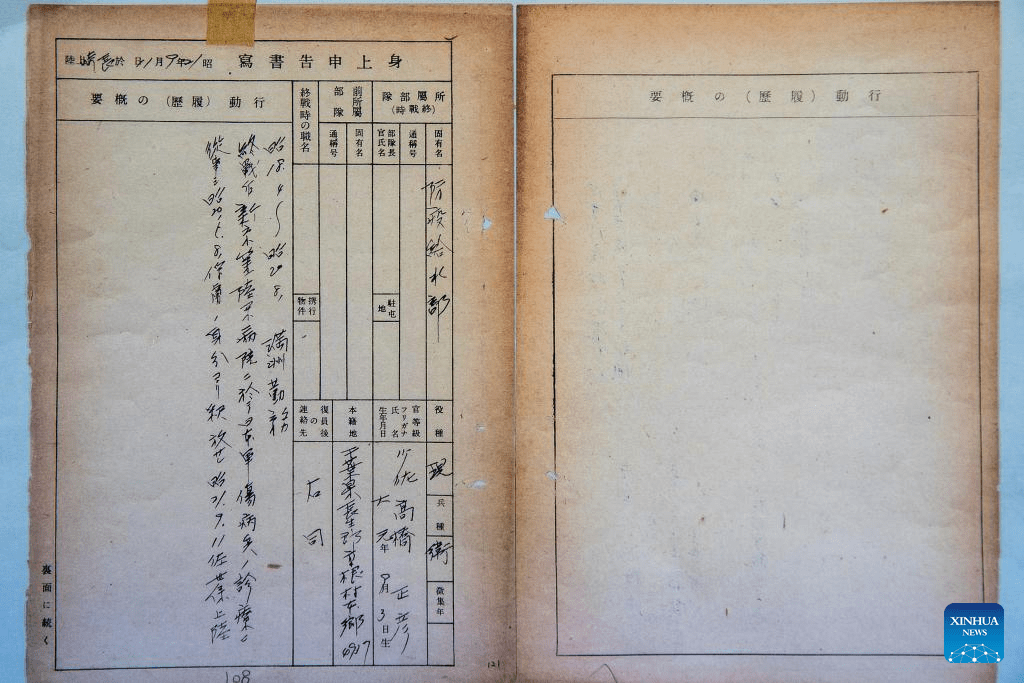 身上申告書寫
昭21年9月11日 於
所屬部隊 (終戰時)
固有名
通稱号
防疫給水部
部隊長官氏名
駐屯地
前所屬部隊
固有名
通稱号
終戰時の職名
携行物件
役種
現
兵種
衛
徵集年
官等級
フリガナ
氏名
生年月日
少佐 高橋 正彦
大 元年 9月 3日生
本籍地
千葉県長生郡 村本郷
復員後の連絡先
右同
行動(履歷)の概要
昭18.4〜昭20.8. 満洲勤務
終戰后 陸軍病院ニ於テ日本軍傷病兵ノ診療ニ
從事ス 昭 釈放セ 昭21.9.11佐世保上陸
裏面に続く
108
121
行動(履歷)の概要
XINHUA
NEWS